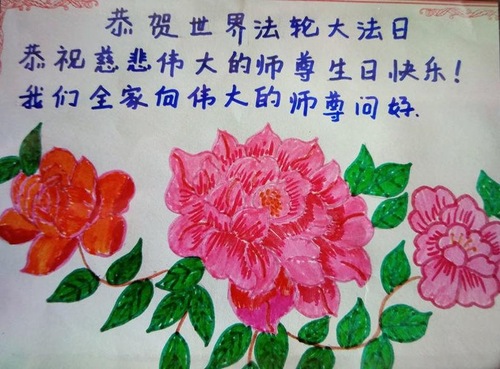 恭贺世界法轮大法日
恭祝慈悲伟大的师尊生日快乐!
我们全家向伟大的师尊问好.